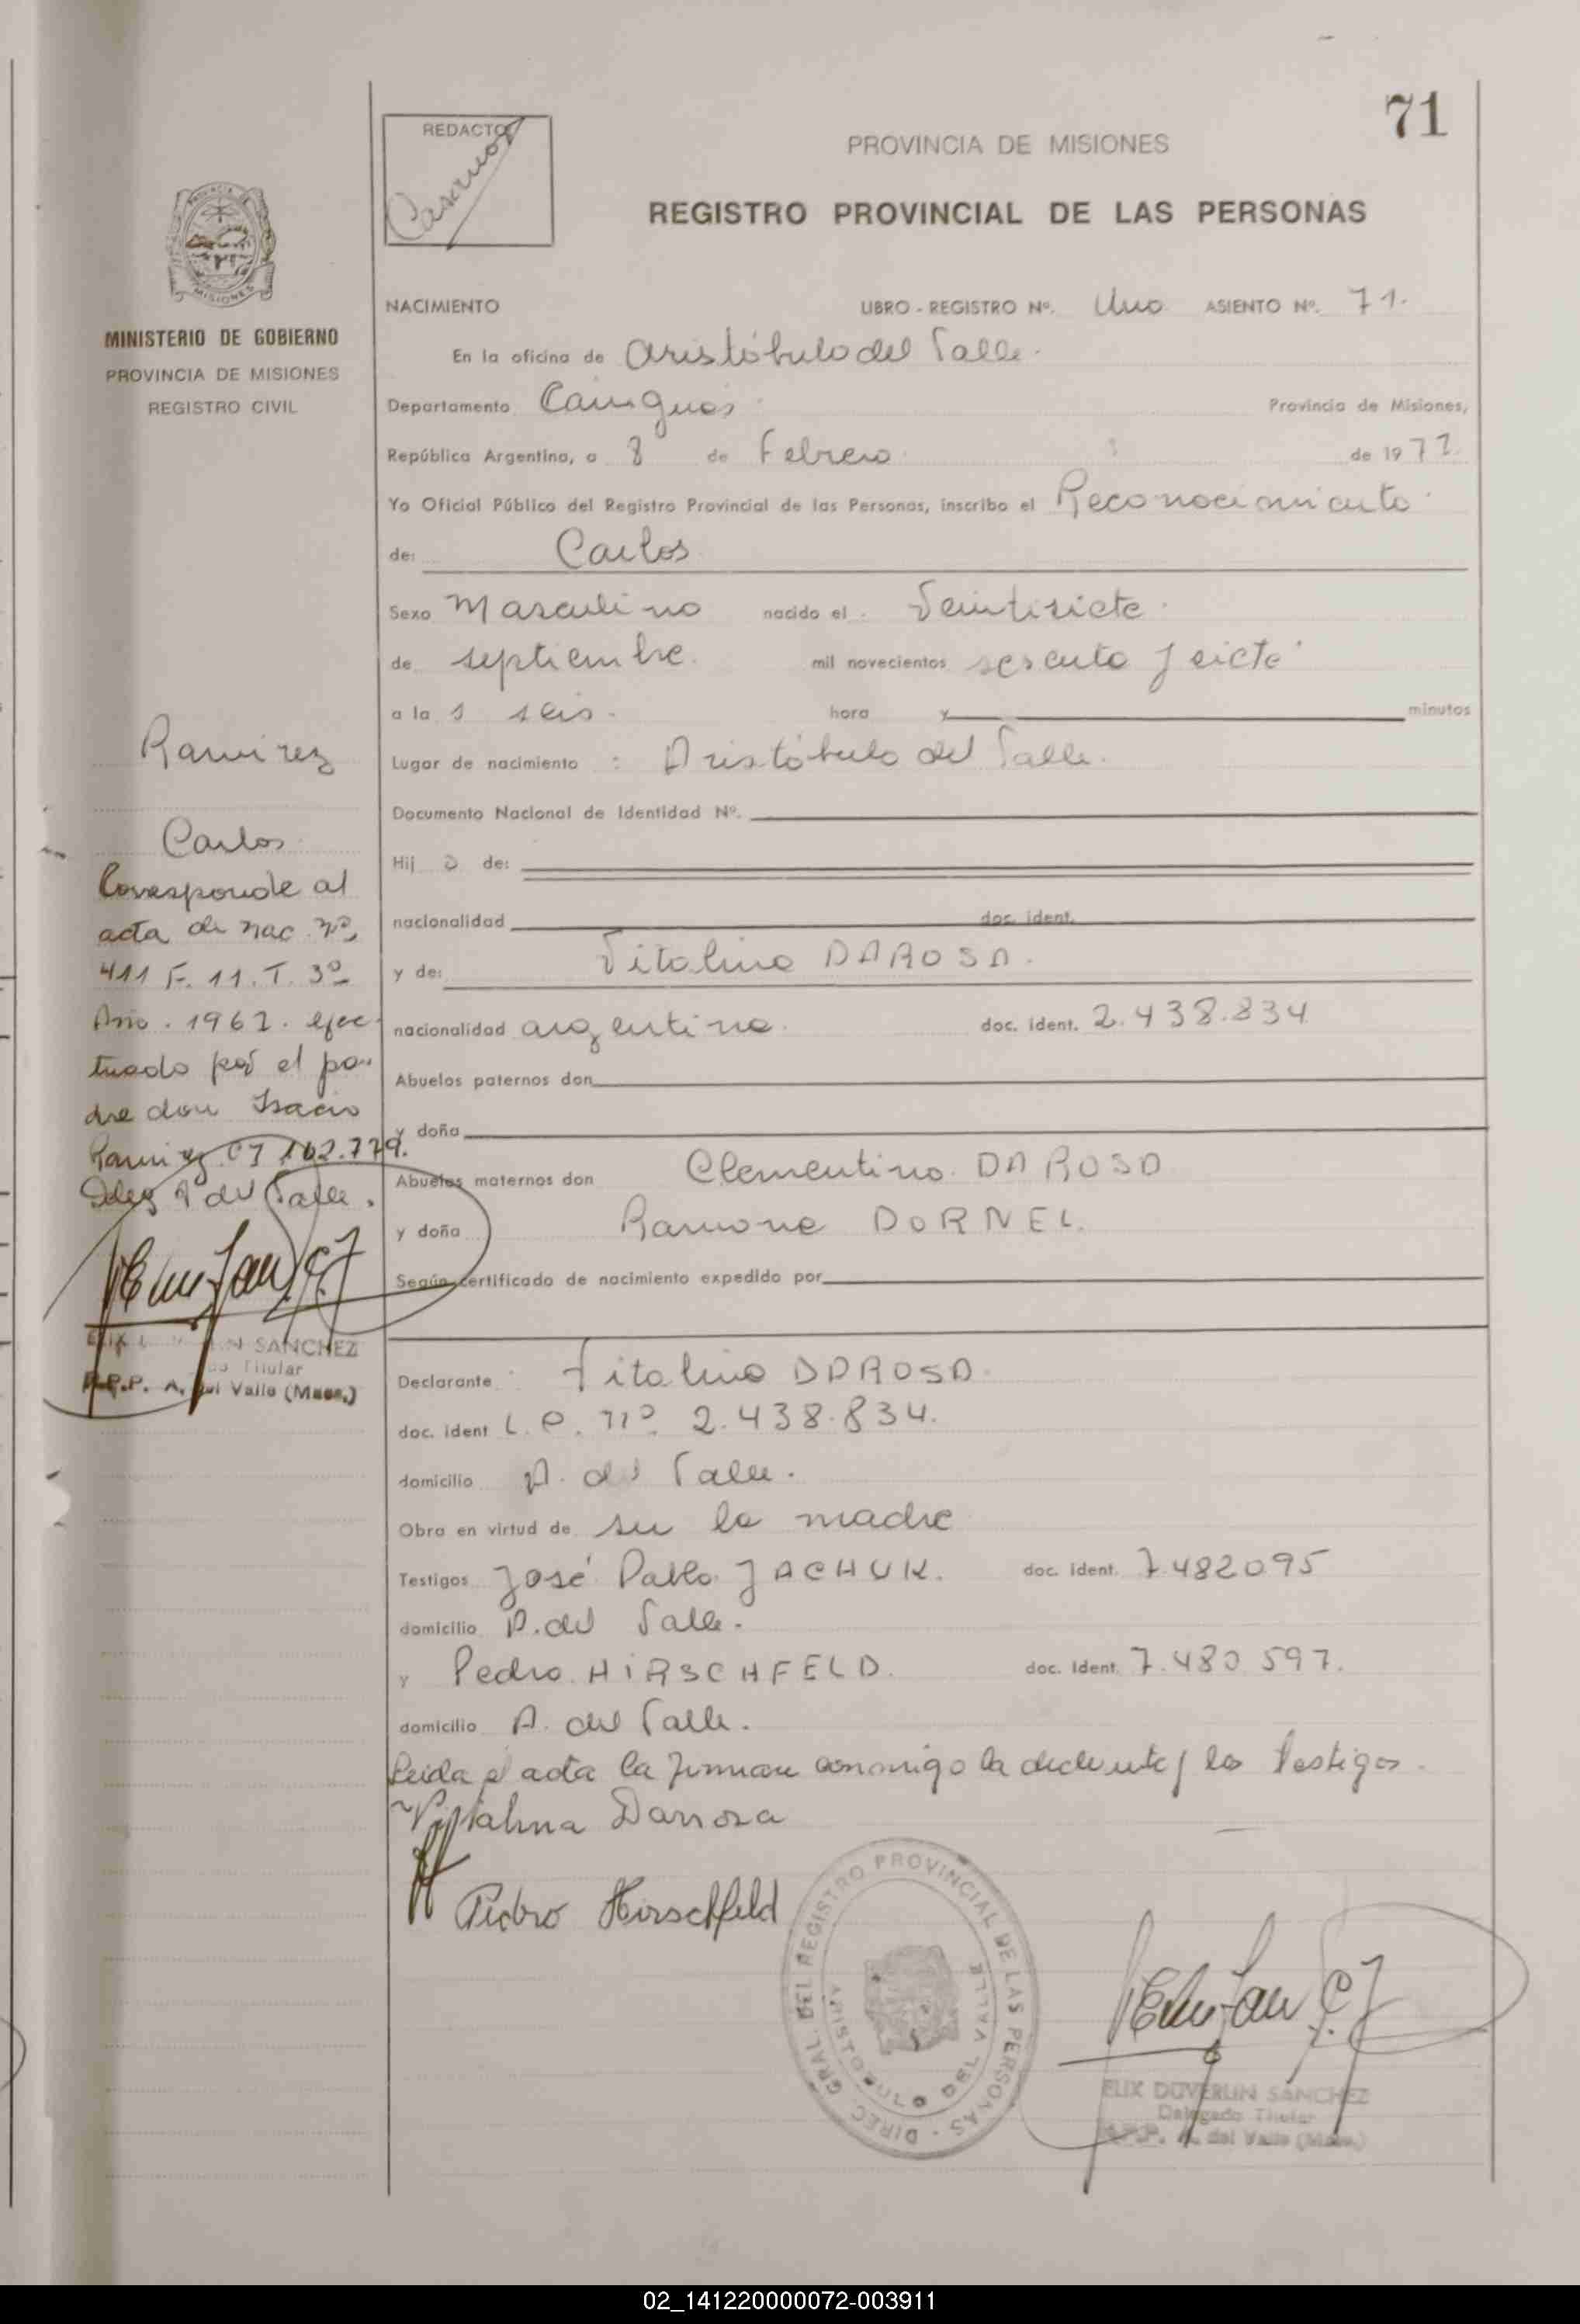 71
REDACTOR
PROVINCIA DE MISIONES
REGISTRO PROVINCIAL DE LAS PERSONAS
MISIONES
MINISTERIO DE GOBIERNO
PROVINCIA DE MISIONES
REGISTRO CIVIL
NACIMIENTO LIBRO - REGISTRO Nº. Uno ASIENTO Nº. 71.
En la oficina de Aristóbulo del Valle.
Departamento Cainguás Provincia de Misiones,
República Argentina, a 8 de Febrero de 1972
Yo Oficial Público del Registro Provincial de las Personas, inscribo el Reconocimiento
de: Carlos
Sexo Masculino nacido el Veintisiete
de septiembre mil novecientos sesenta y siete
a la s seis hora y minutos
Lugar de nacimiento : Aristóbulo del Valle.
Documento Nacional de Identidad Nº.
Hij o de:
nacionalidad doc. ident.
y de: Vitalina DAROSA.
nacionalidad argentina. doc. ident. 2.438.834
Abuelos paternos don
y doña
Abuelos maternos don Clementino DA ROSA
y doña Ramona DORNEL.
Según certificado de nacimiento expedido por
Declarante : Vitalina DAROSA.
doc. ident L.C. nº. 2.438.834.
domicilio A. del Valle.
Obra en virtud de su la madre
Testigos José Pablo JACHUK. doc. ident. 7.482095
domicilio A. del Valle.
y Pedro HIRSCHFELD. doc. ident. 7.480.597.
domicilio A. del Valle.
Leida el acta la firman conmigo la declarante y los testigos.
Vitalina Darrosa
Pedro Hirschfeld
DIREC. GRAL. DEL REGISTRO PROVINCIAL DE LAS PERSONAS
ARISTOBULO DEL VALLE
ELIX DUVERLIN SANCHEZ
Delegado Titular
R.P.P. A. del Valle (Mnes.)
Ramirez
Carlos
Corresponde al
acta de nac. nº
411 F. 11. T. 3º
Año. 1967. efec
tuado por el pa
dre don Isacio
Ramirez CI 162.779.
Deleg A del Valle.
SANCHEZ
Titular
R.P.P. A. del Valle (Mnes.)
02_141220000072-003911